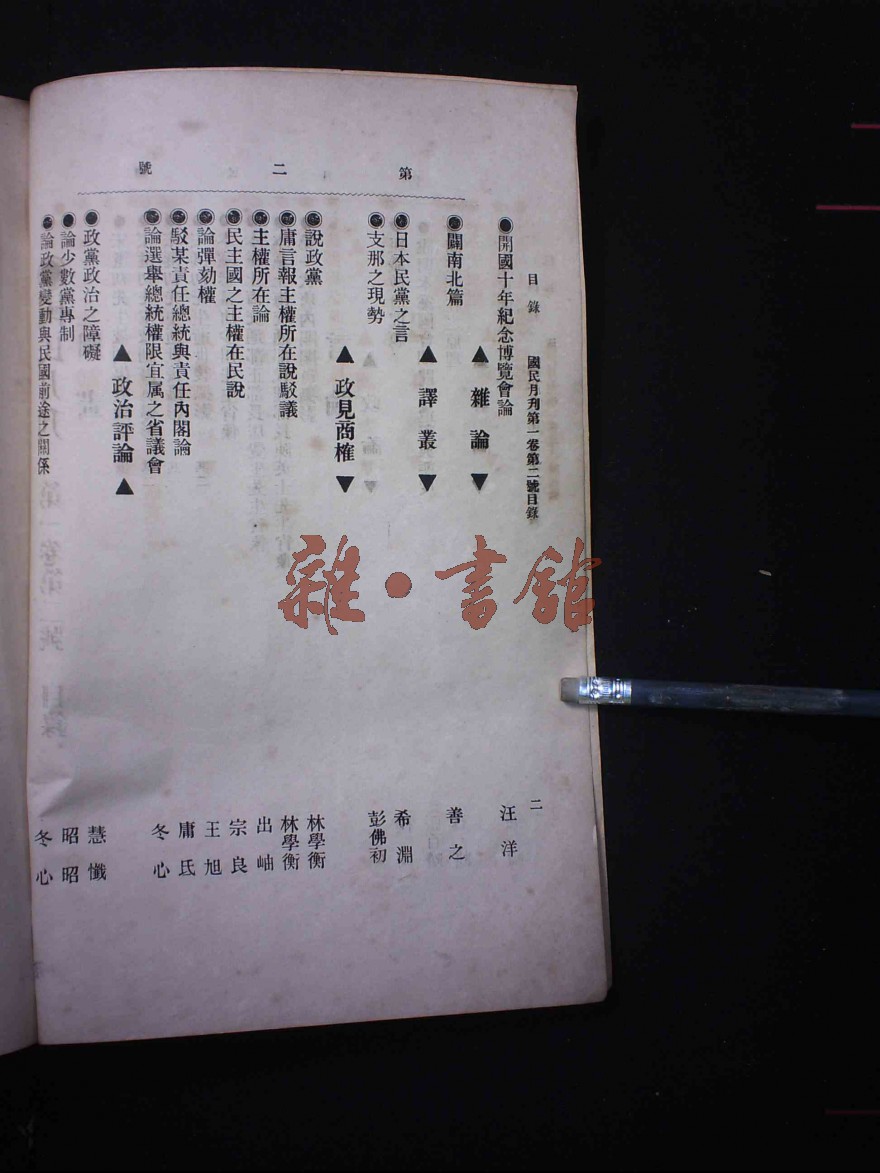 第二號
目錄 國民月刋第一卷第二號目錄 二
◉開國十年紀念博覽會論 汪洋
▲雜論▼
◉闢南北篇 善之
▲譯叢▼
◉日本民黨之言 希淵
◉支那之現勢 彭佛初
▲政見商榷▼
◉說政黨 林學衡
◉庸言報主權所在說駁議 林學衡
◉主權所在論 出岫
◉民主國之主權在民說 宗良
◉論彈劾權 王旭
◉駁某責任總統與責任內閣論 庸氏
◉論選舉總統權限宜属之省議會 冬心
▲政治評論▲
◉政黨政治之障礙 慧懺
◉論少數黨專制 昭昭
◉論政黨變動與民國前途之關係 冬心
雜·書館